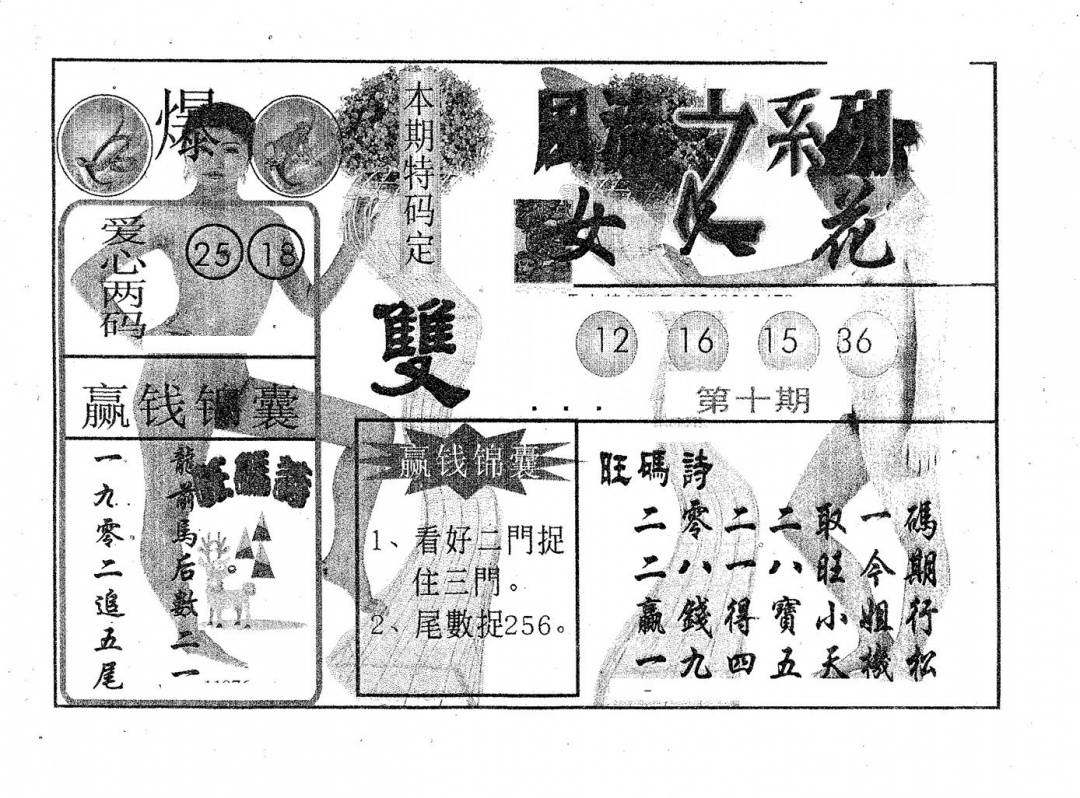 爆
本期特码定
雙
系列
女人花
爱心两码
25 18
12 16 15 36
第十期
赢钱锦囊
旺碼詩
龍前馬后數二一
一九零二追五尾
赢钱锦囊
1、看好二門捉
住三門。
2、尾數捉256。
旺碼詩
二零二二取一碼
二八一八旺今期
赢錢得寶小姐行
一九四五天機松